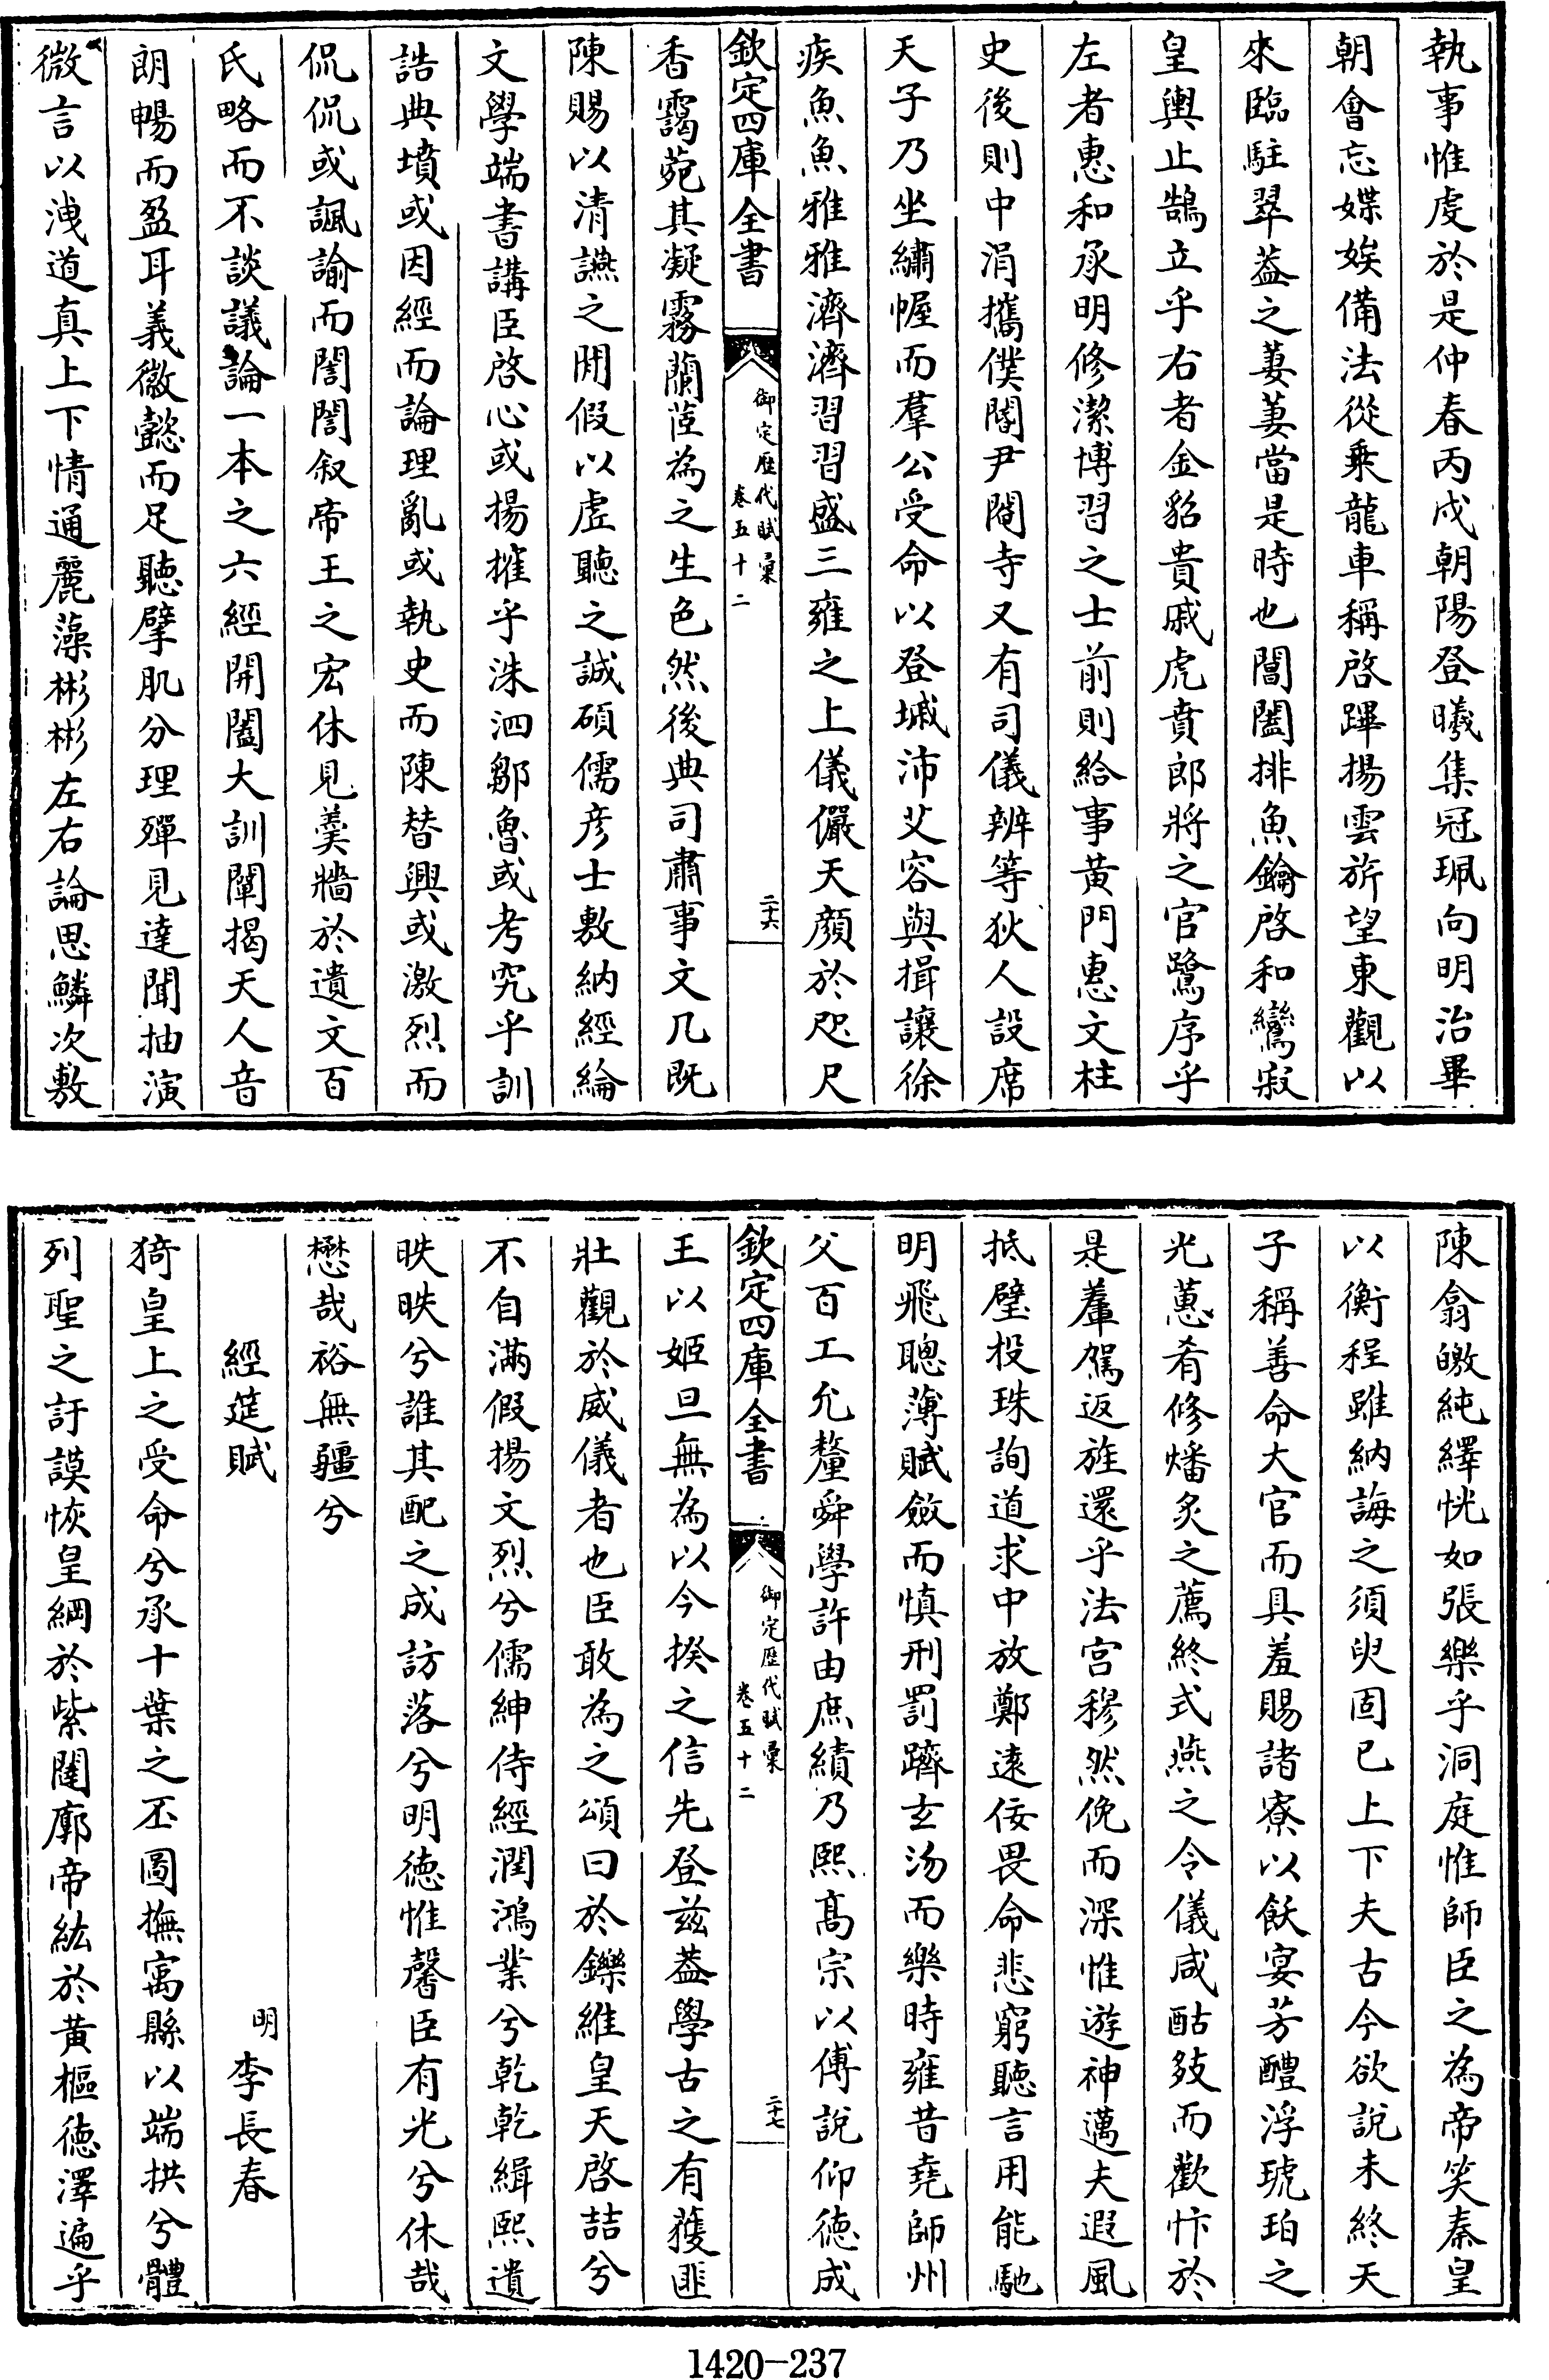 執事惟虔於是仲春丙戌朝陽登曦集冠珮向明治畢
朝會忘媟娭備法從乘龍車稱啓蹕揚雲旂望東觀以
來臨駐翠葢之萋萋當是時也閶闔排魚鑰啓和鸞寂
皇輿止鵠立乎右者金貂貴戚虎賁郎將之官鷺序乎
左者惠和承明修潔博習之士前則給事黃門惠文柱
史後則中涓攜僕閽尹閹寺又有司儀辨等狄人設席
天子乃坐繡幄而羣公受命以登墄沛艾容與揖讓徐
疾魚魚雅雅濟濟習習盛三雍之上儀儼天顏於咫尺
欽定四庫全書
御定歷代賦彙
卷五十二
二十六
香靄菀其凝霧蘭茝為之生色然後典司肅事文几既
陳賜以清讌之閒假以虛聽之誠碩儒彥士敷納經綸
文學端書講臣啓心或揚搉乎洙泗鄒魯或考究乎訓
誥典墳或因經而論理亂或執史而陳替興或激烈而
侃侃或諷諭而誾誾叙帝王之宏休見羮牆於遺文百
氏略而不談議論一本之六經開闔大訓闡揭天人音
朗暢而盈耳義徽懿而足聽擘肌分理殫見達聞抽演
微言以洩道真上下情通麗藻彬彬左右論思鱗次敷
陳翕皦純繹恍如張樂乎洞庭惟師臣之為帝笑秦皇
以衡程雖納誨之須臾固已上下夫古今欲說未終天
子稱善命大官而具羞賜諸寮以飫宴芳醴浮琥珀之
光蕙肴修燔炙之薦終式燕之令儀咸酤㪍而歡忭於
是輦駕返旌還乎法宮穆然俛而深惟遊神邁夫遐風
抵璧投珠詢道求中放鄭遠佞畏命悲窮聽言用能馳
明飛聰薄賦斂而慎刑罰躋玄沕而樂時雍昔堯師州
父百工允釐舜學許由庶績乃熙高宗以傅說仰德成
欽定四庫全書
御定歷代賦彙
卷五十二
二十七
王以姬旦無為以今揆之信先登茲葢學古之有獲匪
壯觀於威儀者也臣敢為之頌曰於鑠維皇天啓喆兮
不自滿假揚文烈兮儒紳侍經潤鴻業兮乾乾緝熙遺
昳昳兮誰其配之成訪落兮明德惟馨臣有光兮休哉
懋哉裕無疆兮
經筵賦
明 李長春
猗皇上之受命兮承十葉之丕圖撫寓縣以端拱兮體
列聖之訏謨恢皇綱於紫闥廓帝紘於黃樞德澤遍乎
1420-237